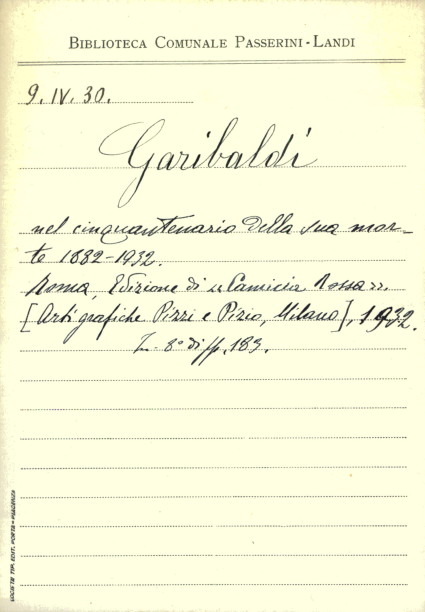 BIBLIOTECA COMUNALE PASSERINI - LANDI
9. IV. 30.
Garibaldi
nel cinquantenario della sua mor-
te 1882-1932.
Roma, Edizione di «Camicia Rossa».
[Arti grafiche Pizzi e Pizio, Milano], 1932.
8° di pp. 183.
SOCIETÀ TIP. EDIT. PORTA - PIACENZA